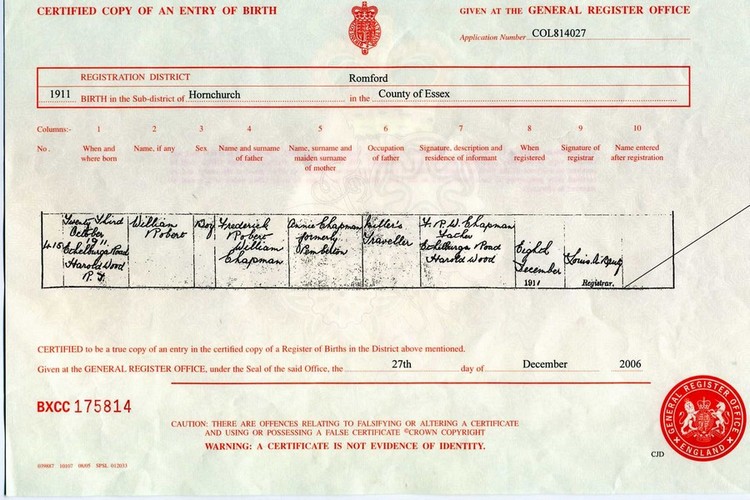 CERTIFIED COPY OF AN ENTRY OF BIRTH
GIVEN AT THE GENERAL REGISTER OFFICE
Application Number COL814027
REGISTRATION DISTRICT Romford
1911 BIRTH in the Sub-district of Hornchurch in the County of Essex
Columns:- 1 2 3 4 5 6 7 8 9 10
No. When and where born Name, if any Sex Name and surname of father Name, surname and maiden surname of mother Occupation of father Signature, description and residence of informant When registered Signature of registrar Name entered after registration
Twenty Third October 1911 Harold Wood
William Robert
Boy
Frederick Robert William Chapman
Annie Chapman formerly Pemberton
Miller's Traveller
F. R. W. Chapman Father Road Harold Wood
Eighth December 1911
Louis
Registrar.
CERTIFIED to be a true copy of an entry in the certified copy of a Register of Births in the District above mentioned.
Given at the GENERAL REGISTER OFFICE, under the Seal of the said Office, the 27th day of December 2006
BXCC 175814
CAUTION: THERE ARE OFFENCES RELATING TO FALSIFYING OR ALTERING A CERTIFICATE
AND USING OR POSSESSING A FALSE CERTIFICATE ©CROWN COPYRIGHT
WARNING: A CERTIFICATE IS NOT EVIDENCE OF IDENTITY.
GENERAL REGISTER OFFICE
ENGLAND
CJD
039687 10107 08/05 SPSL 012033